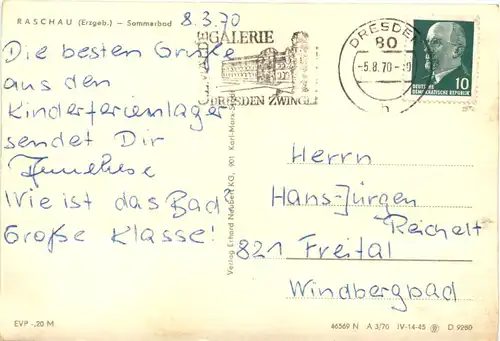 RASCHAU (Erzgeb.) – Sommerbad
8.3.70
Die besten Grüße
aus den
Kinderferienlager
sendet Dir
Wie ist das Bad?
Große Klasse!
GEMÄLDEGALERIE
DRESDEN ZWINGER
DRESDEN
80
-5.8.70-
h
DEUTSCHE
DEMOKRATISCHE REPUBLIK
10
Verlag Erhard Neubert KG, 901 Karl-Marx-Stadt
Herrn
Hans-Jürgen
Reichelt
821 Freital
Windbergbad
EVP -,20 M
46569 N A 3/70 IV-14-45 D 9260